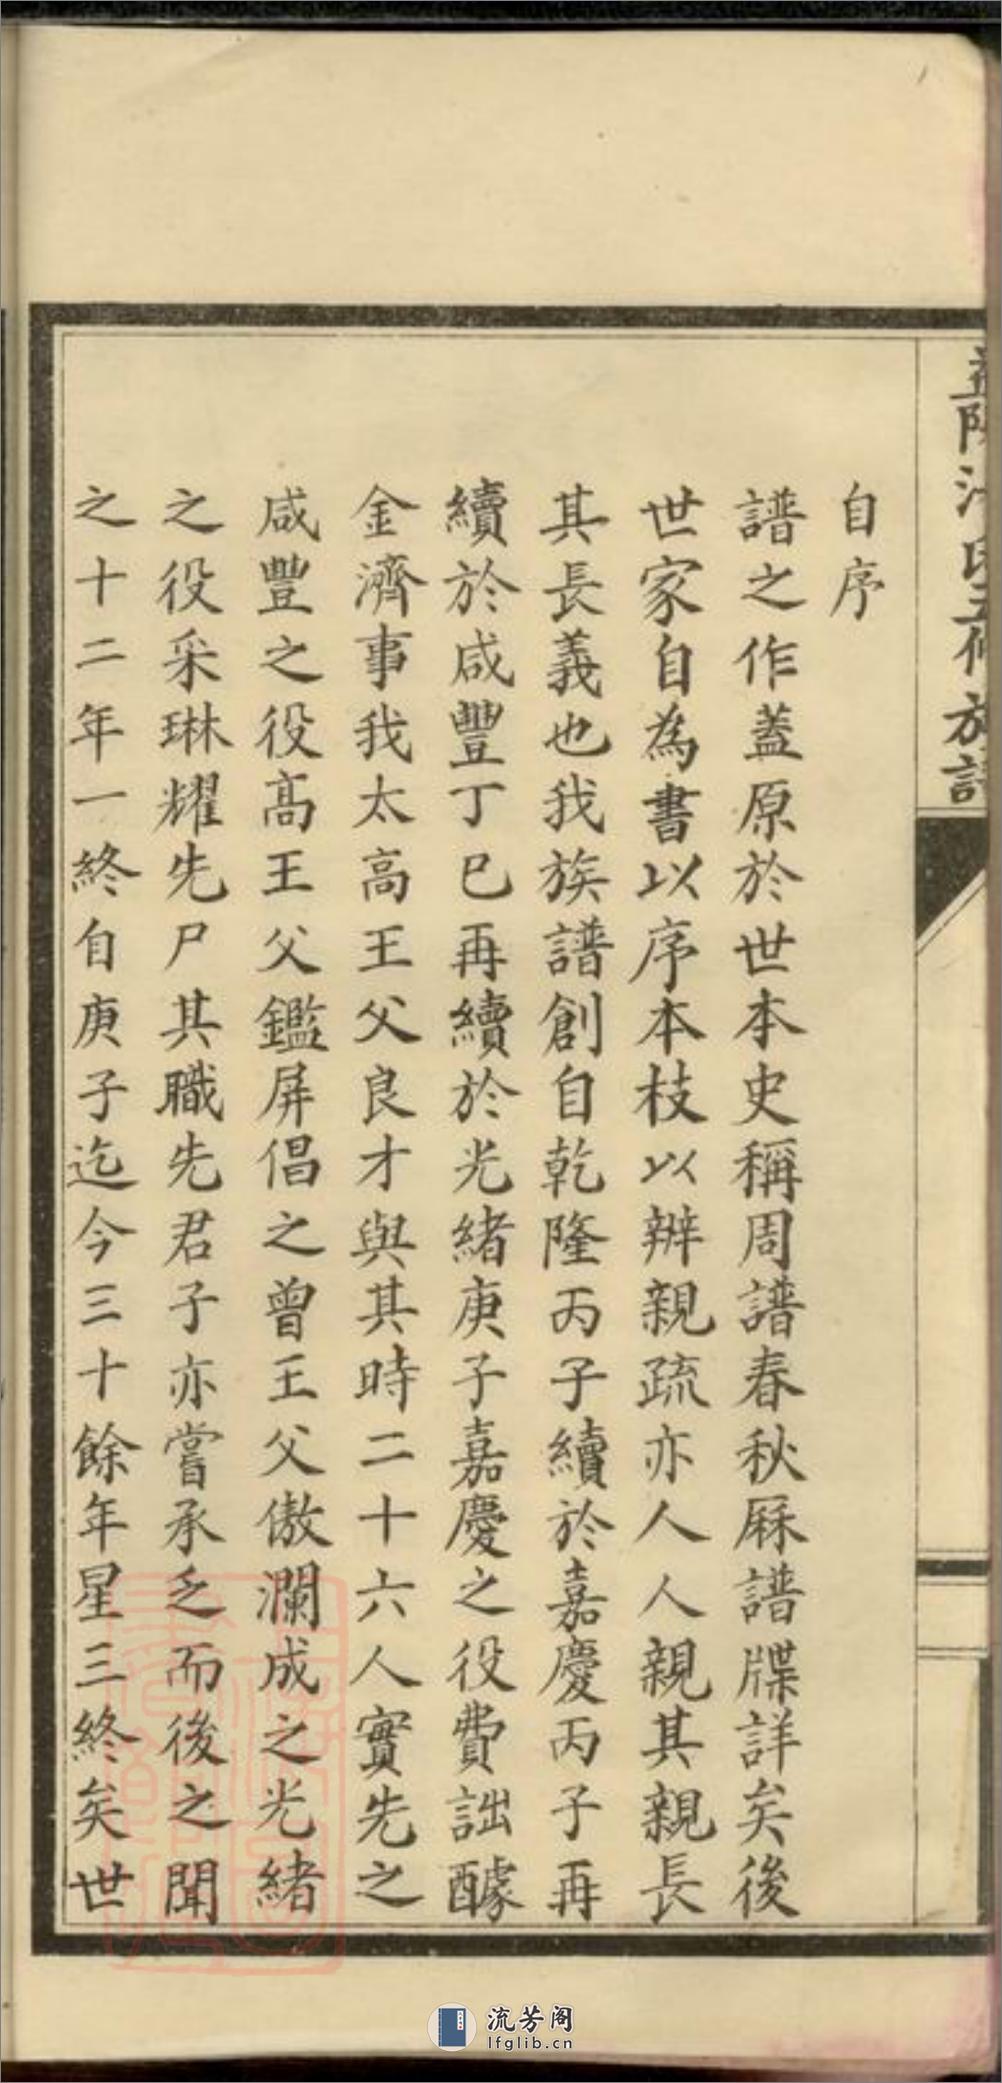 氏五修族譜
自序
譜之作蓋原於世本史稱周譜春秋厤譜牒詳矣後
世家自為書以序本枝以辨親疏亦人人親其親長
其長義也我族譜創自乾隆丙子續於嘉慶丙子再
續於咸豐丁巳再續於光緒庚子嘉慶之役費詘醵
金濟事我太高王父良才與其時二十六人實先之
咸豐之役高王父鑑屏倡之曾王父傲瀾成之光緒
之役采琳耀先尸其職先君子亦嘗承乏而後之聞
之十二年一終自庚子迄今三十餘年星三終矣世
流芳阁
lfglib.cn